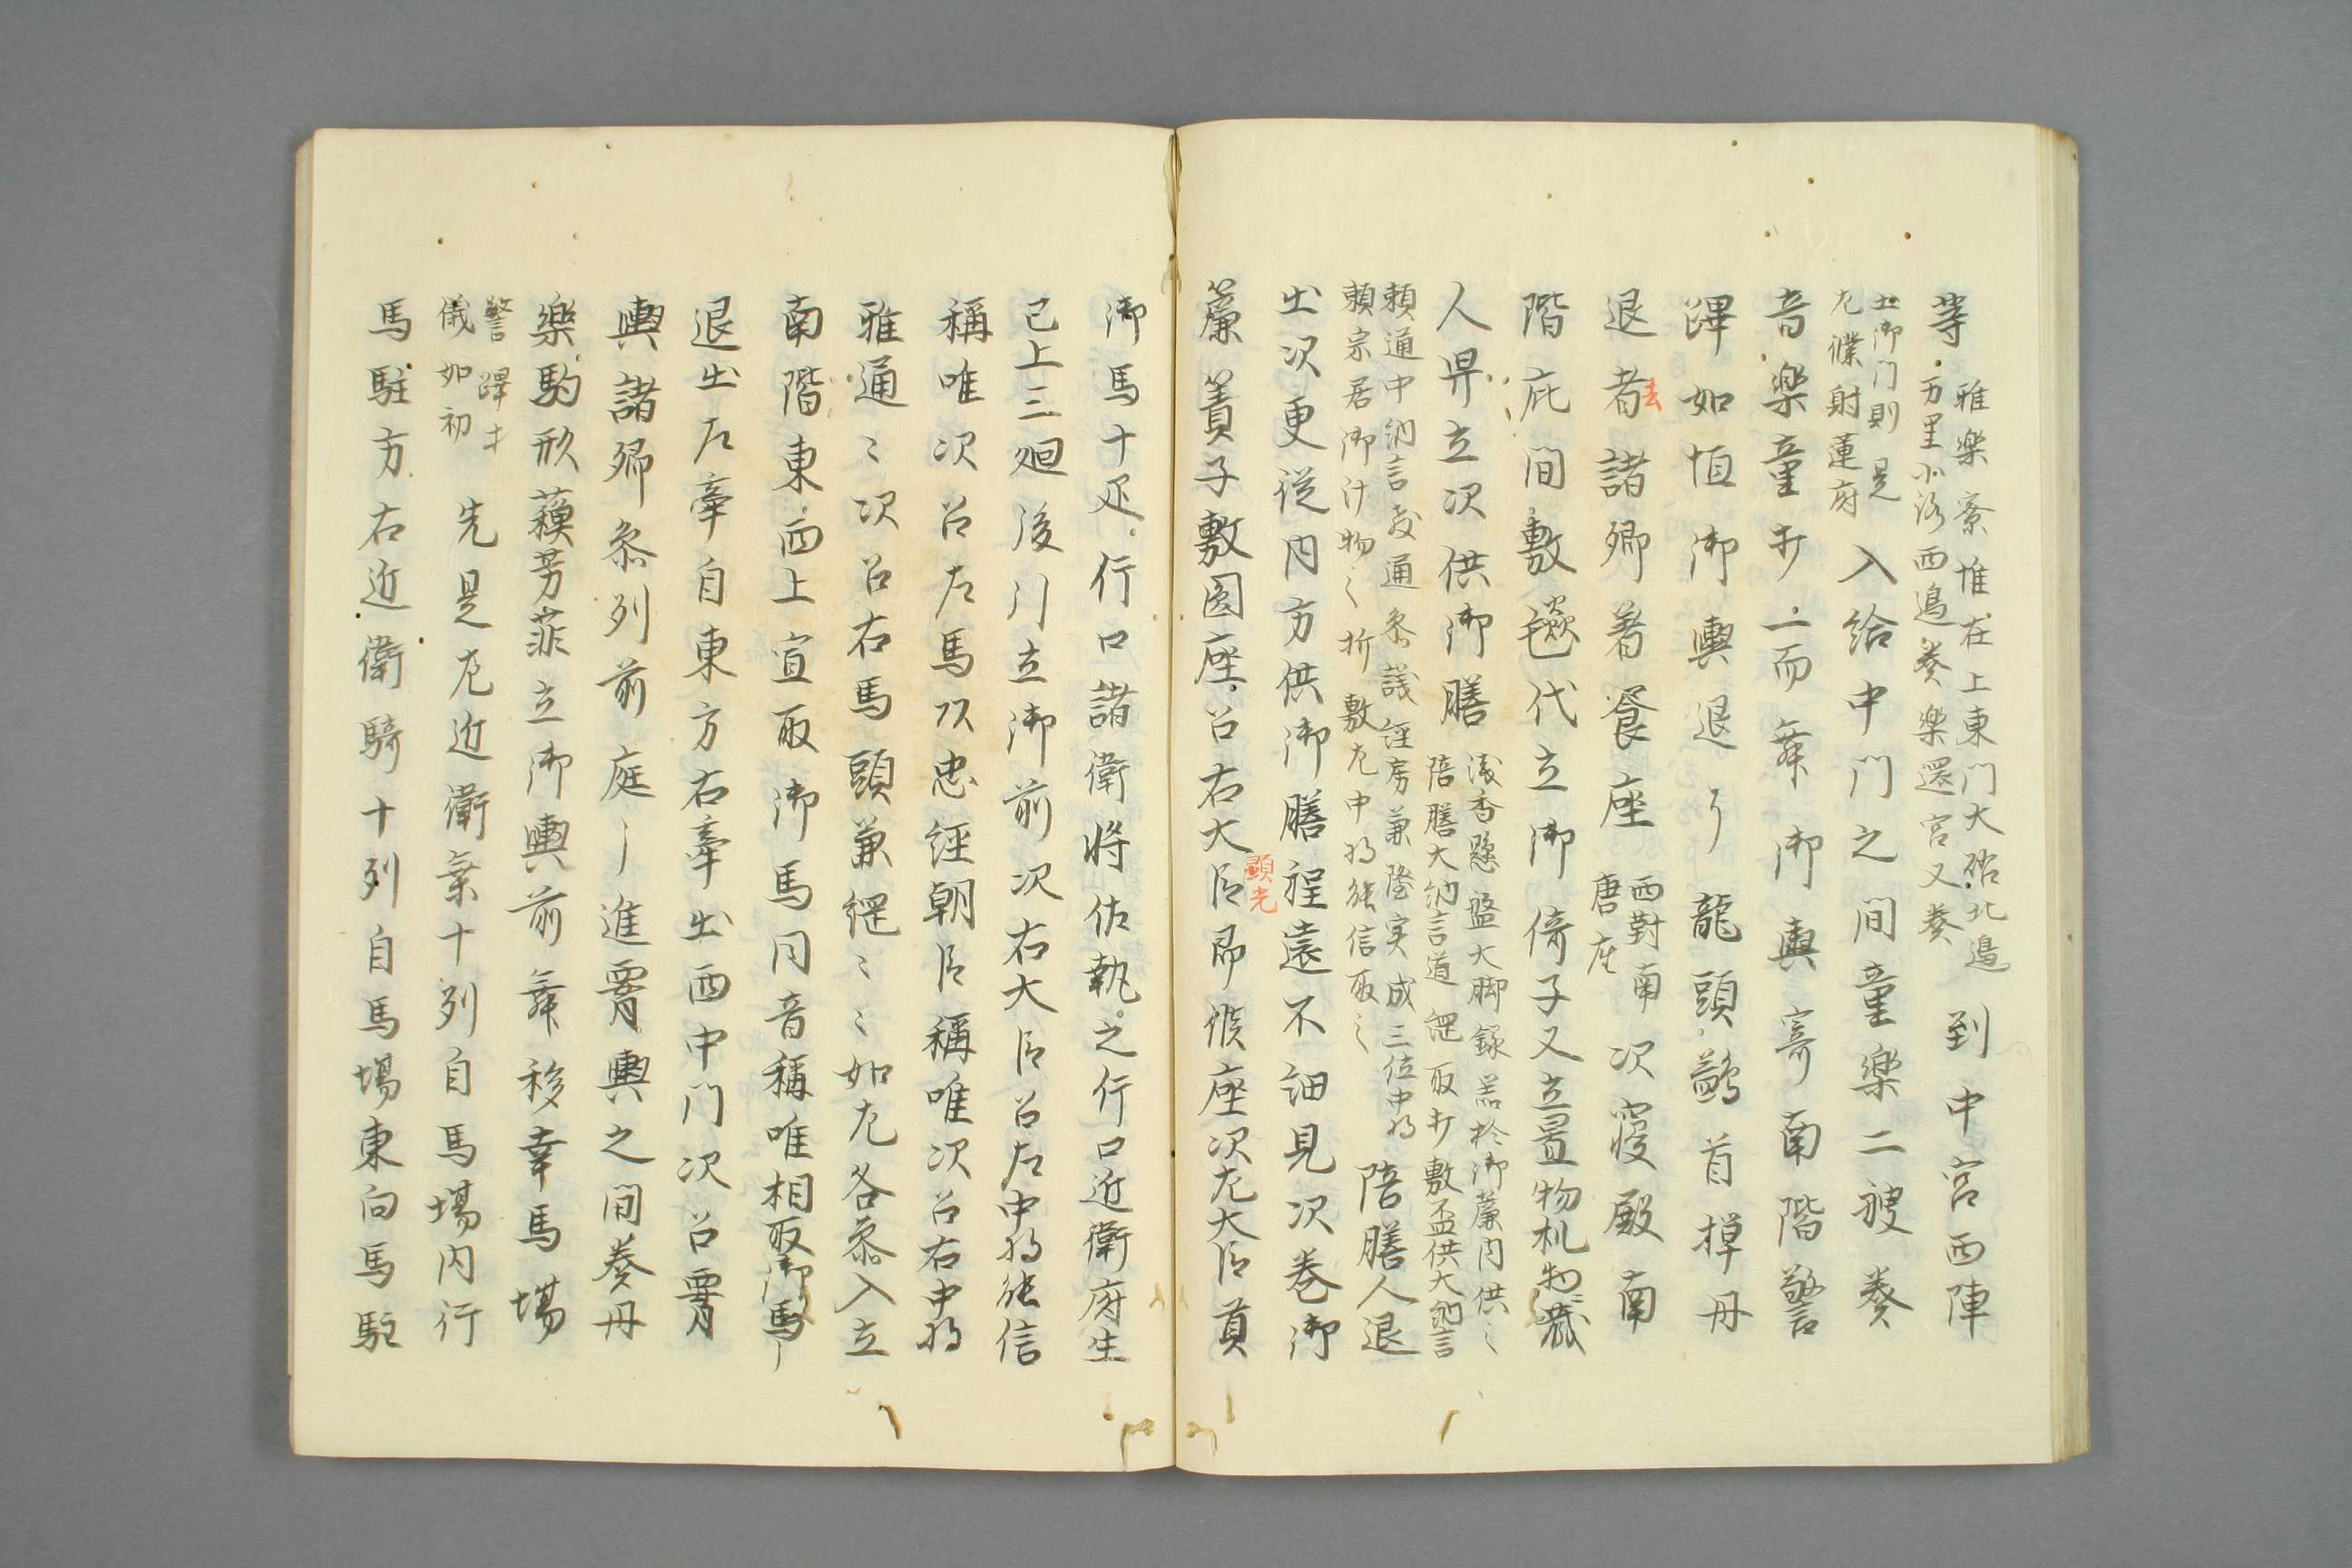 等 雅楽寮堆在上東門大路北邉
万里小路西邉奏楽還宮又奏 到中宮西陣
土御門則是
左僕射蓮府 入給中門之間童楽二艘奏
音楽童廾二而舞御輿寄南階警
蹕如恒御輿退了龍頭鷁首掉舟
退去者諸卿著饗座 西對南
唐座 次寝殿南
階庇間敷毯代立御倚子又立置物机
人舁立次供御膳 浅香懸盤大脚銀器於御簾内供之
陪膳大納言道綱取打敷盃供大納言
頼通中納言教通参議経房兼隆実成三位中将
頼宗居御汁物之折敷左中将能信取之 陪膳人退
出次更従内方供御膳程遠不細見次巻御
簾簀子敷圓座召右大臣顕光即候座次左大臣貢
御馬十疋行口諸衛将佐執之行口近衛府生
已上三廻後引立御前次右大臣召左中将能信
稱唯次召左馬頭忠経朝臣稱唯次召右中将
雅通〻次召右馬頭兼綱〻〻如左各参入立
南階東西上宣取御馬同音稱唯相取御馬
退出左牽自東方右牽出西中門次召霄
輿諸卿参列前庭進霄輿之間奏舟
楽駒形蘓芳菲立御輿前舞移幸馬場
警蹕才
儀如初 先是左近衛乗十列自馬場内行
馬駐方右近衛騎十列自馬場東向馬駐